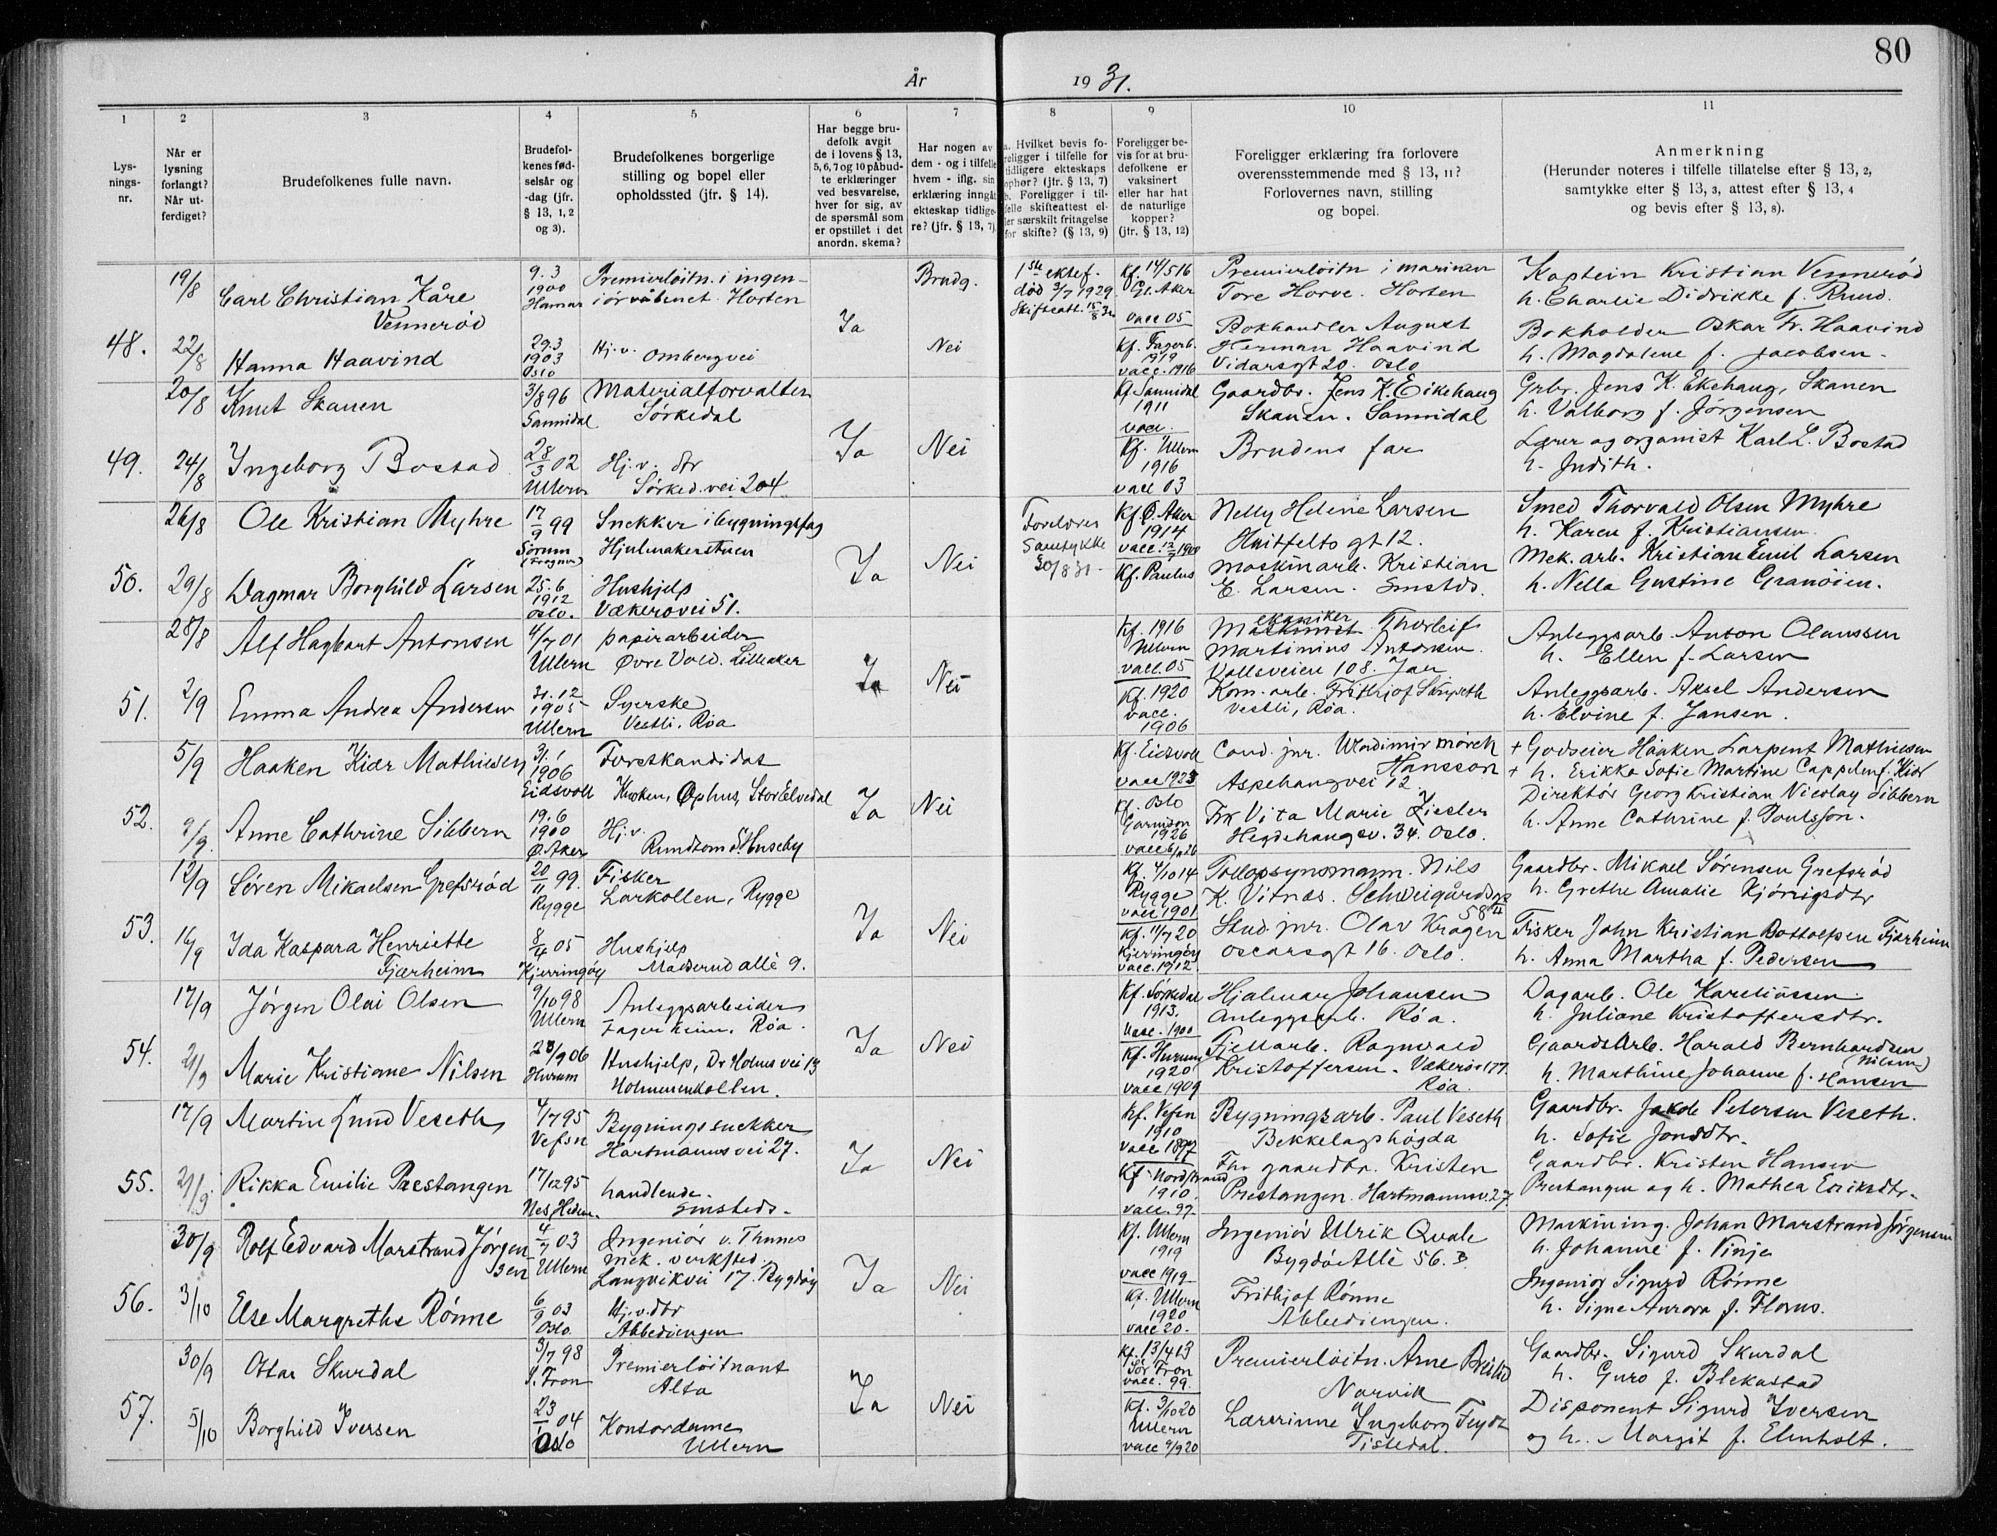 80
År 1931.
1 2 3 4 5 6 7 8 9 10 11
Lys-
nings-
nr.
Når er
lysning
forlangt?
Når ut-
ferdiget?
Brudefolkenes fulle navn.
Brudefol-
kenes fød-
selsår og
-dag (jfr.
§ 13, 1, 2
og 3).
Brudefolkenes borgerlige
stilling og bopel eller
opholdssted (jfr. § 14).
Har begge bru-
defolk avgit
de i lovens § 13,
5, 6, 7 og 10 påbud-
te erklæringer
ved besvarelse,
hver for sig, av
de spørsmål som
er opstillet i det
anordn. skema?
Har nogen av
dem - og i tilfelle
hvem - iflg. sin
erklæring inngått
ekteskap tidlige-
re? (jfr. § 13, 7).
a. Hvilket bevis fo-
religger i tilfelle for
tidligere ekteskaps
ophør? (jfr. § 13, 7)
b. Foreligger i til-
felle skifteattest el-
ler særskilt fritagelse
for skifte? (§ 13, 9)
Foreligger be-
vis for at bru-
defolkene er
vaksinert
eller har hat
de naturlige
kopper?
(jfr. § 13, 12)
Foreligger erklæring fra forlovere
overensstemmende med § 13, 11?
Forlovernes navn, stilling
og bopel.
Anmerkning
(Herunder noteres i tilfelle tillatelse efter § 13, 2,
samtykke efter § 13, 3, attest efter § 13, 4
og bevis efter § 13, 8).
48.
19/8
22/8
Carl Christian Kåre
Vennerød
9.3
1900
Hamar
Premierløitn. i ingen-
iørvåbenet Horten
Ja
Brudg.
1ste ektef.
død 3/7 1929.
Skifteatt. 15/8 31
Kf. 14/5 16
Gr. Aker
vacc 05
Premierløitn i marinen
Tore Horve. Horten
Kaptein Kristian Vennerød
h. Charlie Didrikke f. Ruud.
Hanna Haavind
29.3
1903
Oslo
Hj.v. Ombergvei
Nei
Kf. Fagerb.
1919
vacc. 1916
Bokhandler August
Herman Haavind
Vidarsgt 20. Oslo
Bokholder Oskar Fr. Haavind
h. Magdalene f. Jacobsen.
49.
20/8
24/8
Knut Skanen
3/8 96
Sannidal
Materialforvalter
Sørkedal
Ja
Nei
Kf. Sannidal
1911
vacc.
Gaardbr. Jens K. Eikehaug
Skanen. Sannidal
Grbr. Jens K. Ekehaug, Skanen
h. Valborg f. Jørgensen
Ingeborg Bostad
28/3 02
Ullern
Hj.v. dtr
Sørked.vei 204
Kf. Ullern
1916
vacc 03
Brudens far
Lærer og organist Karl L. Bostad
h. Judith.
50.
26/8
29/8
Ole Kristian Myhre
17/9 99
Sørum
(Frogner)
Snekker i bygningsfag
Hjulmakerstuen
Ja
Nei
Foreldres
Samtykke
30/8 31
Kf. Ø. Aker
1914
vacc. 12/7 1900
Nelly Helene Larsen
Huitfelts gt 12.
Smed Thorvald Olsen Myhre
h. Karen f. Kristiansen.
Dagmar Borghild Larsen
25.6
1912
Oslo.
Hushjelp
Vækerøvei 51.
Kf. Paulus
Maskinarb. Kristian
E. Larsen. Smsteds.
Mek. arb. Kristian Emil Larsen
h. Nella Gustine Granøien.
51.
28/8
2/9
Alf Hagbart Antonsen
4/7 01
Ullern
papirarbeider
Øvre Vold. Lilleaker
Ja
Nei
Kf. 1916
Ullern
vacc. 05
Mekaniker Thorleif
Martinius Antonsen.
Vollsveien 108. Jar
Anleggsarb. Anton Olaussen
h. Ellen f. Larsen
Emma Andrea Andersen
31.12
1905
Ullern
Syerske
Vestli. Røa
Kf. 1920
vacc.
1906
Kom. arb. Frithjof Skipseth
Vestli, Røa.
Anleggsarb. Aksel Andersen
h. Elvine f. Jansen.
52.
5/9
9/9.
Haaken Kiær Mathiesen
31.1
1906
Eidsvoll
Forstkandidat
Koken, Ophus, Stor Elvedal
Ja
Nei
Kf. Eidsvoll
vacc 1923
Cand. jur. Wladimir Mørch
Hansson
Aspehaugvei 12
+ Godseier Haaken Larpent Mathiesen
+ h. Erikka Sofie Martine Cappelen f. Kiær
Anne Cathrine Sibbern
19.6
1900
Ø. Aker
Hj.v.
Rundtom St. Huseby
Kf. Oslo
Garnison
1926
Frk Vita Marie Ziesler
Hegdehaugsv. 34. Oslo.
Direktør Georg Kristian Nicolay Sibbern
h. Anne Cathrine f. Poulsson.
53.
12/9
16/9
Søren Mikaelsen Grefsrød
20/11 99.
Rygge
Fisker
Larkollen, Rygge
Ja
Nei
Kf. 4/10 14
Rygge
vacc 1901
Tollopsynsmann. Nils
K. Vitnes. Schweigårdsgt
58
Gaardbr. Mikael Sørensen Grefsrød
h. Grethe Amalie Kjørrigsdtr
Ida Kaspara Henriette
Fjærheim
8/4 05
Kjerringøy
Hushjelp
Madserud allé 9.
Kf. 11/7 20
Kjerringøy
vacc. 1912
Stud. jur. Olav Kragen
Oscarsgt 16. Oslo.
Fisker John Kristian Bottolfsen Fjærheim
h. Anna Martha f. Pedersen
54.
17/9
21/9
Jørgen Olai Olsen
9/10 98
Ullern
Anleggsarbeider
Fagerheim. Røa.
Ja
Nei
Kf. Sørkedal
1913.
vacc. 1900
Hjalmar Johansen
Anleggsarb. Røa.
Dagarb. Ole Kareliussen
h. Juliane Kristoffersdtr.
Marie Kristiane Nilsen
23/9 06
Hurum
Hushjelp, Dr Holms vei 13
Holmenkollen.
Kf. Hurum
1920
vacc 1909
Fjellarb. Ragnvald
Kristoffersen. Vækerøv 177
Røa.
Gaardsarb. Harald Bernhardsen
(Nilsen)
h. Marthine Johanne f. Hansen
55.
17/9
21/9
Martin Lund Veseth
4/7 95
Vefsn
Bygningssnekker
Hartmanns vei 27.
Ja
Nei
Kf. Vefsn
1910
vacc 1897
Bygningsarb. Paul Veseth
Bekkelagshøgda
Gaardbr. Jakob Petersen Veseth.
h. Sofie Jonsdtr.
Rikka Emilie Prestangen
17/12 95
Nes, Hedm.
handlende.
smsteds.
Kf. Nordstrand
1910.
vacc. 97.
Fhv gaardbr. Kristen
Prestangen. Hartmannsv. 27.
Gaardbr. Kristen Hansen
Prestangen og h. Mathea Eriksdtr.
56.
30/9
3/10
Rolf Edvard Marstrand Jørgen
sen
4/7 03
Ullern
Ingeniør v. Thunes
mek. verksted.
Langvikvei 17. Bygdøy
Ja
Nei
Kf. Ullern
1919
vacc 1919
Ingeniør Ulrik Qvale
Bygdø Allé 56. B
Maskining. Johan Marstrand Jørgensen
h. Johanne f. Vinje
Else Margrethe Rønne
6/9 03
Oslo.
Hj.v. dtr
Abbediengen
Kf. Ullern
1920
vacc 20.
Frithjof Rønne
Abbediengen.
Ingeniør Sigurd Rønne
h. Signe Aurora f. Florus.
57.
30/9
5/10
Ottar Skurdal
3/7 98
S. Fron
Premierløitnant
Alta
Ja
Nei
Kf. 13/4 13
Sør Fron
vacc. 99.
Premierløitn. Arne
Narvik
Gaardbr. Sigurd Skurdal
h. Guro f. Blekastad
Borghild Iversen
23/1 04
Oslo
Kontordame
Ullern
Kf. 3/10 20
Ullern
vacc 9/9 20
Lærerinne Ingeborg
Tistedal.
Disponent Sigurd Iversen
og h. Margit f. Elmholt.